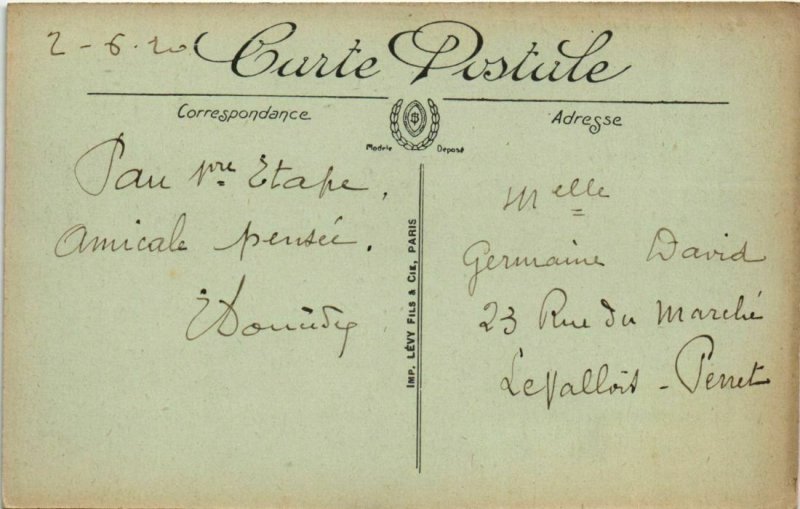 2-6-20
Carte Postale
Correspondance
Adresse
Modèle Déposé
Pau 1re Etape,
Amicale pensée.
IMP. LÉVY FILS & CIE, PARIS
Melle
Germaine David
23 Rue du Marché
Levallois-Perret